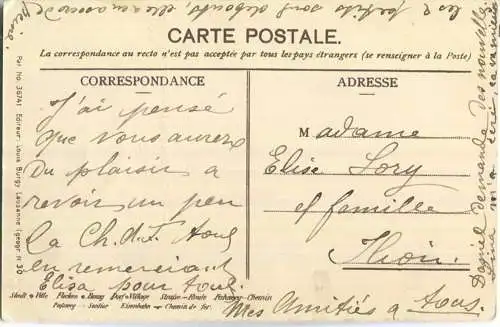 les 2 petits sont debouts, elle a
peine.
CARTE POSTALE.
La correspondance au recto n'est pas acceptée par tous les pays étrangers (se renseigner à la Poste)
CORRESPONDANCE
J'ai pensé
que vous aurez
du plaisir a
revoir un peu
La Ch. d. F. Tous
en remerciant
Elisa pour tout.
Mes Amitiés a tous.
ADRESSE
Madame
Elise Sory
et famille
Daniel demande des nouvelles
Pat No 36741 Editeur: Louis Burgy Lausanne
Stadt = Ville Flecken = Bourg Dorf = Village Strasse = Route Fahrweg = Chemin
Fussweg = Sentier Eisenbahn = Chemin de fer